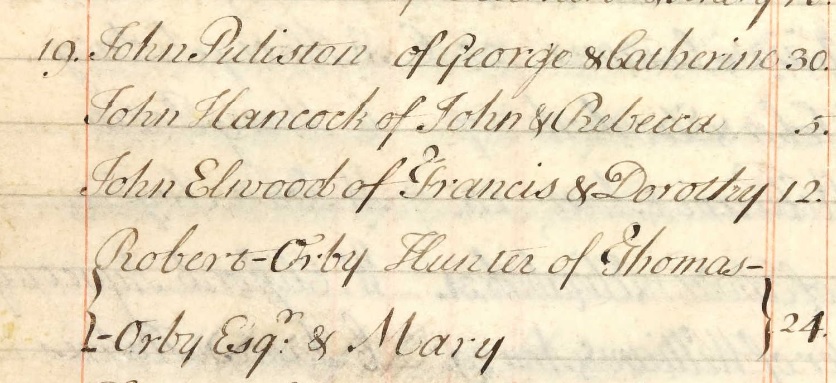 19. John Puliston of George & Catherine 30.
John Hancock of John & Rebecca 5.
John Elwood of Francis & Dorothy 12.
Robert-Orby Hunter of Thomas-
-Orby Esqr. & Mary 24.